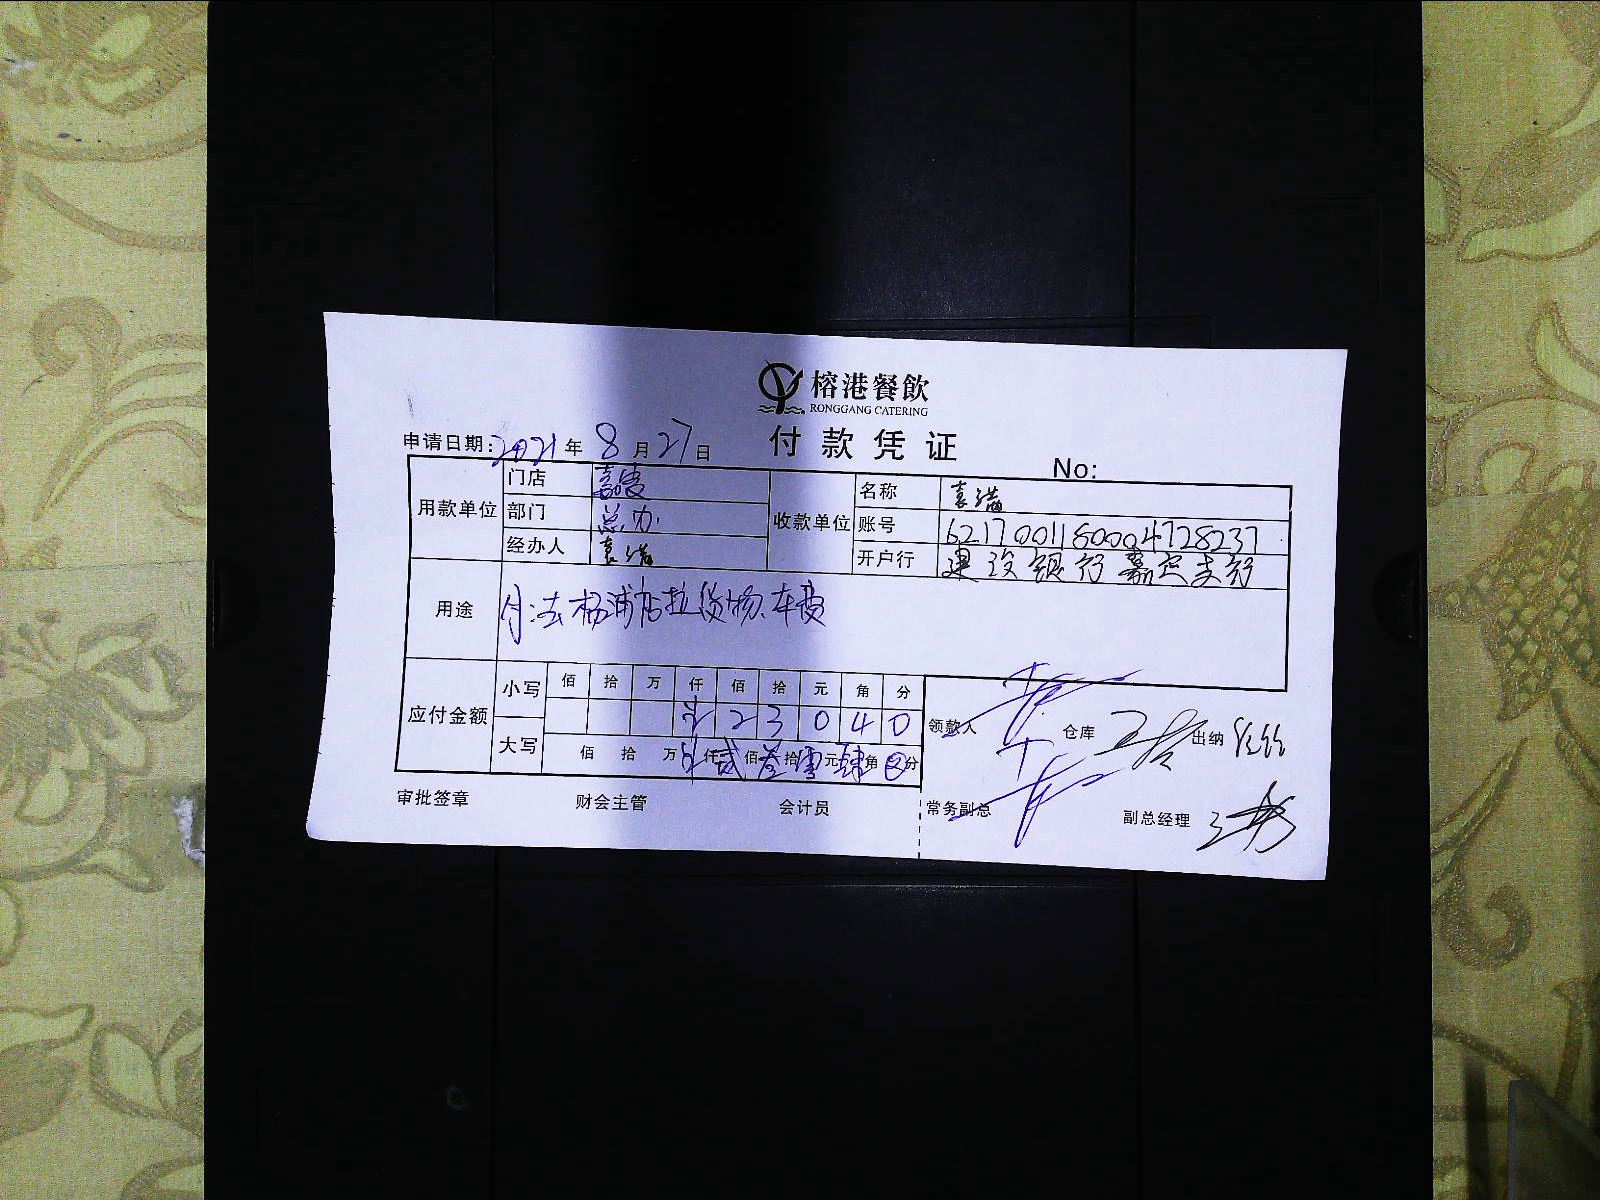 榕港餐飲
RONGGANG CATERING
付款凭证
申请日期:2021年8月27日
No:
用款单位
门店
部门 总办
经办人 袁满
收款单位
名称 袁满
账号 6217001180004728237
开户行 建设银行嘉定支行
用途 付:去杨浦店拉货物车费
应付金额
小写 佰 拾 万 仟 佰 拾 元 角 分
2 3 0 4 0
大写 佰 拾 万 仟 贰 佰 叁 拾 零 元 肆 角 分
领款人 仓库 出纳
审批签章 财会主管 会计员 常务副总 副总经理